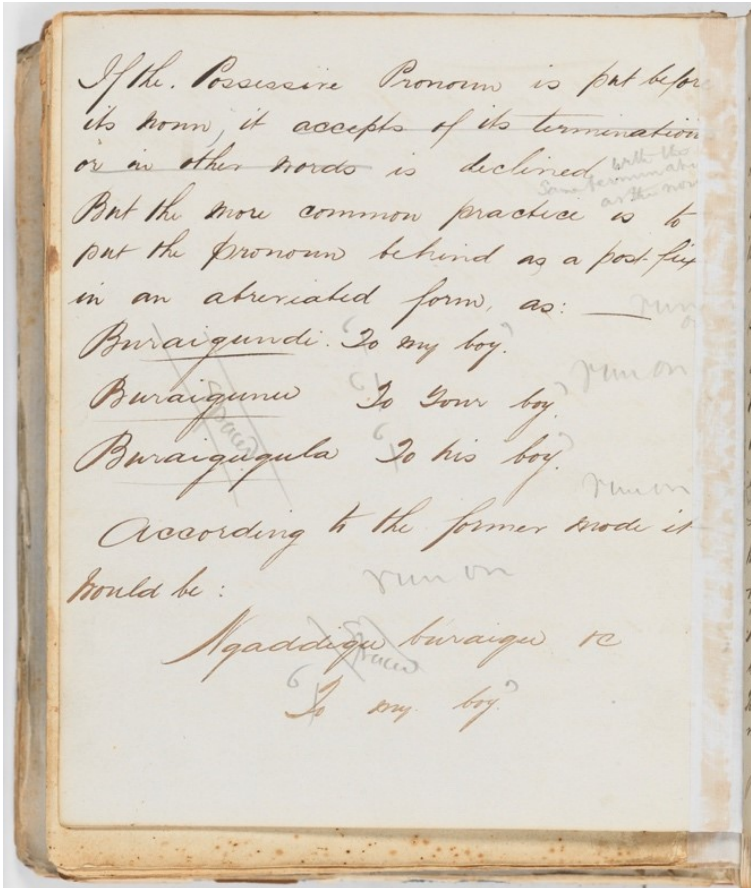 If the. Possessive Pronoun is put before
its noun, it accepts of its termination
or in other words is declined
with the
same termination
as the noun
But the more common practice is to
put the pronoun behind as a post-fix
in an abreviated form, as: —
run on
Buraigundi. 'To my boy.'
run on
Buraigunu 'To Your boy.'
spaced
Buraigugula 'To his boy.'
run on
According to the former mode it
would be:
run on
Ngaddigu buraigu &c
spaced
'To my boy.'